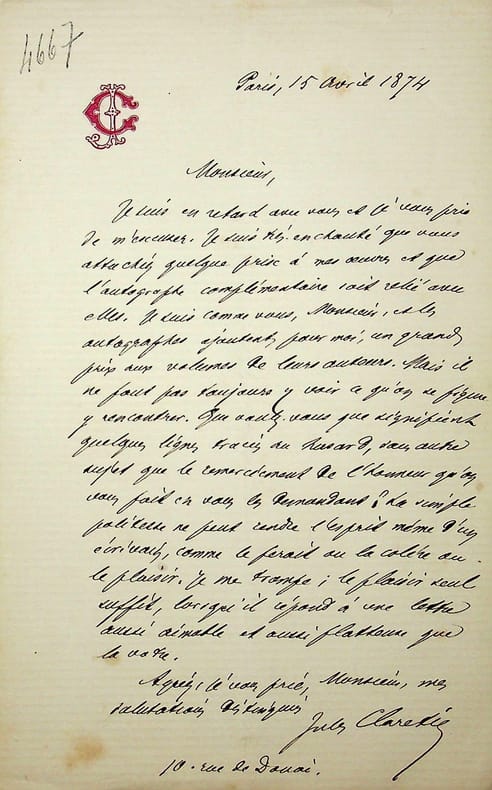 4667
JC
Paris, 15 Avril 1874
Monsieur,
Je suis en retard avec vous et je vous prie
de m'excuser. Je suis très enchanté que vous
attachiez quelque prix à mes œuvres et que
l'autographe complémentaire soit relié avec
elles. Je suis comme vous, Monsieur, et les
autographes ajoutent, pour moi, un grand
prix aux volumes de leurs auteurs. Mais il
ne faut pas toujours y voir ce qu'on se figure
y rencontrer. Que voulez-vous que signifient
quelques lignes tracées au hasard, sans autre
sujet que le remerciement de l'honneur qu'on
vous fait en vous les demandant ? La simple
politesse ne peut rendre l'esprit même d'un
écrivain, comme le ferait ou la colère ou
le plaisir. Je me trompe ; le plaisir seul
suffit, lorsqu'il répond à une lettre
aussi aimable et aussi flatteuse que
la vôtre.
Agréez, je vous prie, Monsieur, mes
salutations distinguées
Jules Claretie
10 rue de Douai.